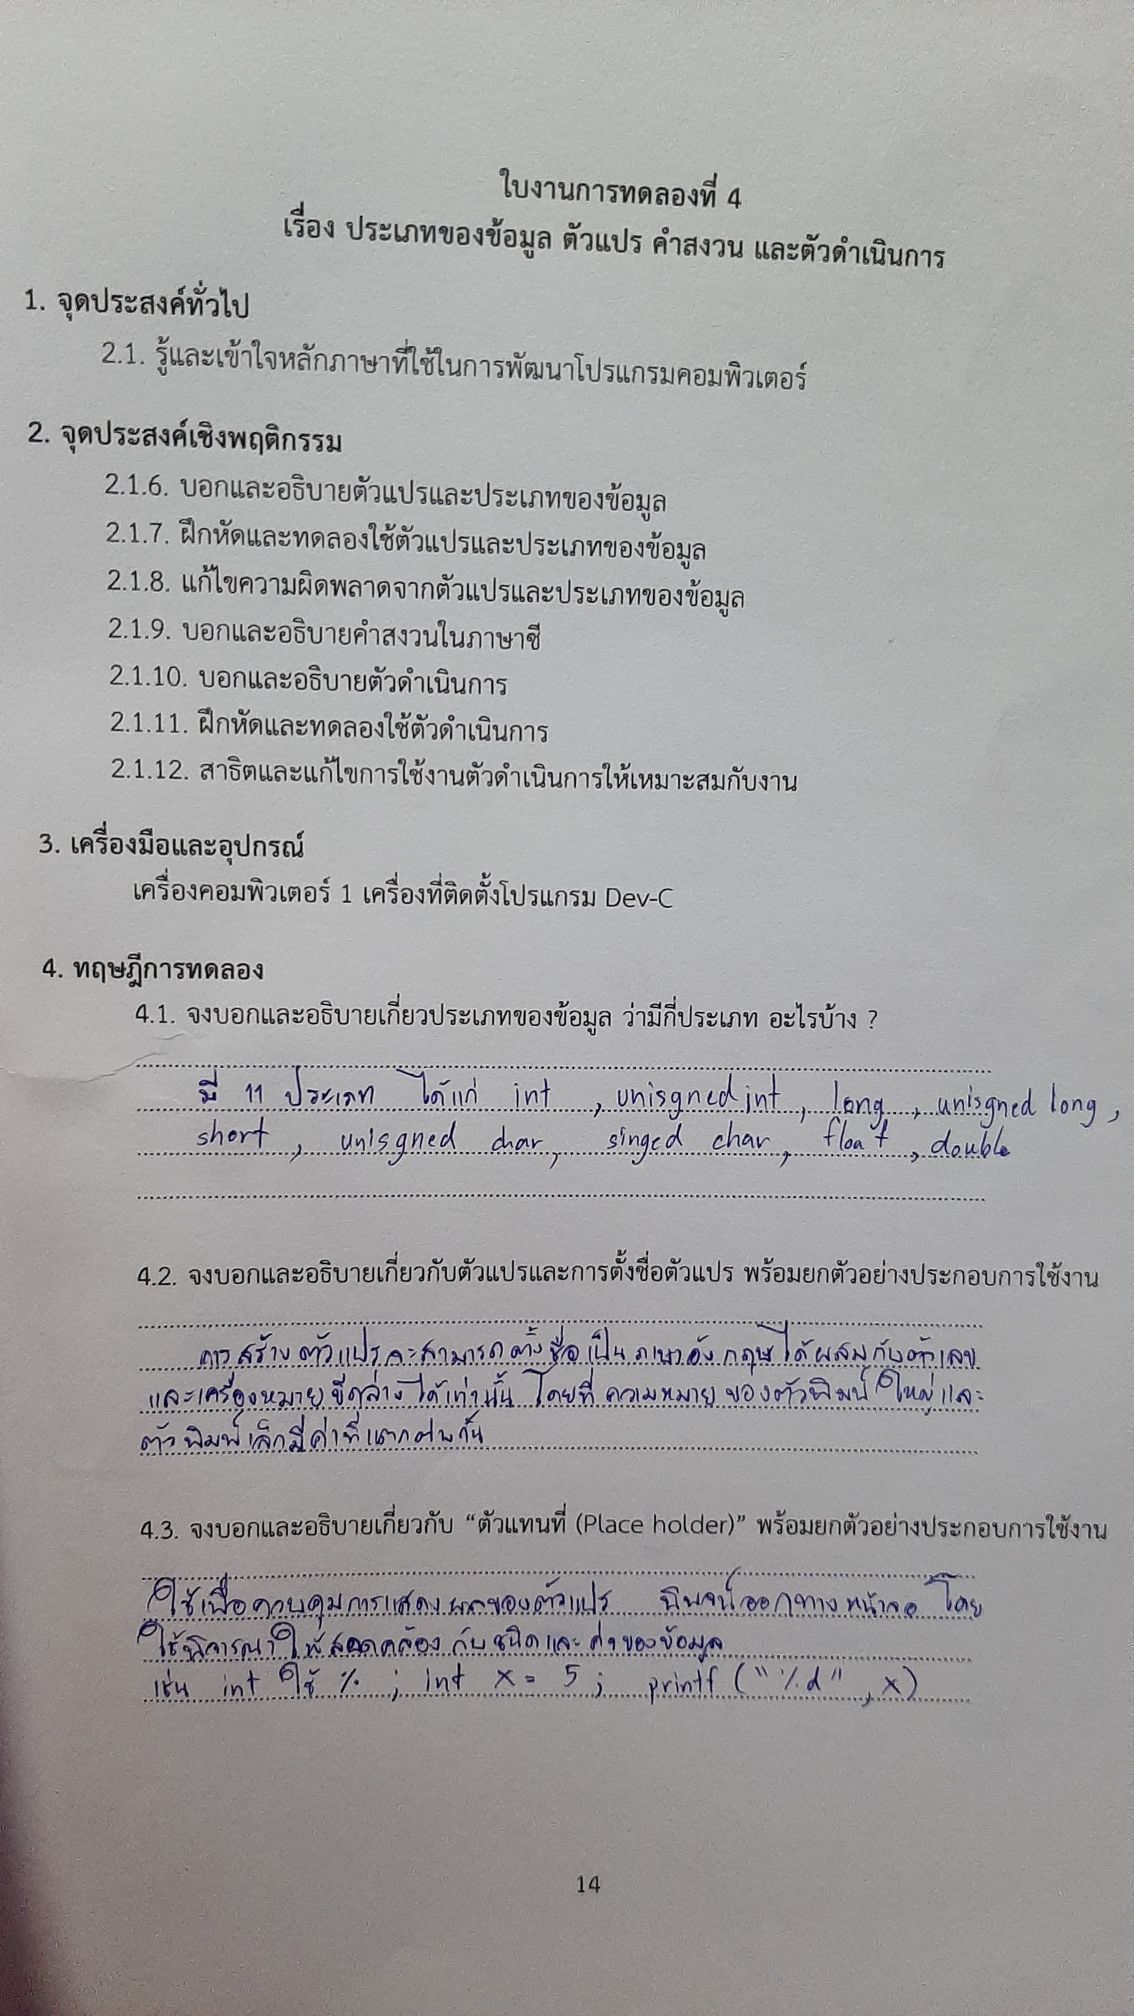 ใบงานการทดลองที่ 4
เรื่อง ประเภทของข้อมูล ตัวแปร คำสงวน และตัวดำเนินการ
1. จุดประสงค์ทั่วไป
2.1. รู้และเข้าใจหลักภาษาที่ใช้ในการพัฒนาโปรแกรมคอมพิวเตอร์
2. จุดประสงค์เชิงพฤติกรรม
2.1.6. บอกและอธิบายตัวแปรและประเภทของข้อมูล
2.1.7. ฝึกหัดและทดลองใช้ตัวแปรและประเภทของข้อมูล
2.1.8. แก้ไขความผิดพลาดจากตัวแปรและประเภทของข้อมูล
2.1.9. บอกและอธิบายคำสงวนในภาษาซี
2.1.10. บอกและอธิบายตัวดำเนินการ
2.1.11. ฝึกหัดและทดลองใช้ตัวดำเนินการ
2.1.12. สาธิตและแก้ไขการใช้งานตัวดำเนินการให้เหมาะสมกับงาน
3. เครื่องมือและอุปกรณ์
เครื่องคอมพิวเตอร์ 1 เครื่องที่ติดตั้งโปรแกรม Dev-C
4. ทฤษฎีการทดลอง
4.1. จงบอกและอธิบายเกี่ยวประเภทของข้อมูล ว่ามีกี่ประเภท อะไรบ้าง ?
มี 11 ประเภท ได้แก่ int , unisgned int , long , unisgned long ,
short , unisgned char, singed char, float , double
4.2. จงบอกและอธิบายเกี่ยวกับตัวแปรและการตั้งชื่อตัวแปร พร้อมยกตัวอย่างประกอบการใช้งาน
การสร้างตัวแปรจะสามารถตั้งชื่อเป็นภาษาอังกฤษได้ผสมกับตัวเลข
และเครื่องหมายขีดล่างได้เท่านั้น โดยที่ความหมายของตัวพิมพ์ใหญ่และ
ตัวพิมพ์เล็กมีค่าที่แตกต่างกัน
4.3. จงบอกและอธิบายเกี่ยวกับ “ตัวแทนที่ (Place holder)” พร้อมยกตัวอย่างประกอบการใช้งาน
ใช้เพื่อควบคุมการแสดงผลของตัวแปร ออกทางหน้าจอ โดย
ใช้พิจารณาให้สอดคล้องกับชนิดและค่าของข้อมูล
เช่น int ใช้ % ; int x = 5 ; printf ("%d" , x)
14